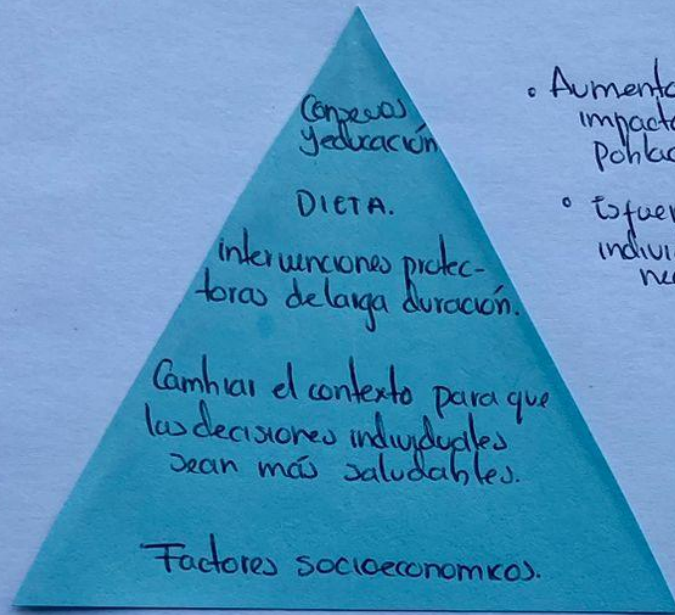 Consejos
y educación
DIETA.
intervenciones protec-
toras de larga duración.
Cambiar el contexto para que
las decisiones individuales
sean más saludables.
Factores socioeconomicos.
• Aumento
impacto